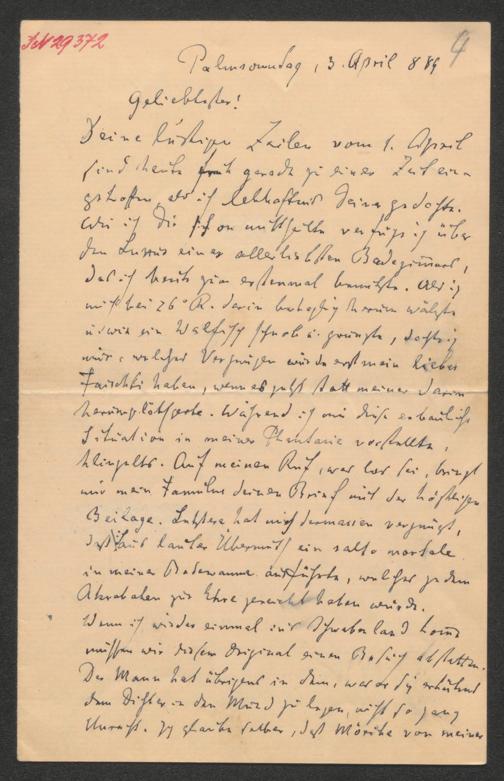 I.N. 29372
9
Palmsonntag, 3. April 889
Geliebtester!
Deine lustigen Zeilen vom 1. April
sind heute früh gerade zu einer Zeit ein-
getroffen, als ich lebhaftest Deiner gedachte.
Wie ich Dir schon mittheilte verfüge ich über
den Luxus eines allerliebsten Badezimmers,
das ich heute zum erstenmal benützte. Als ich
mich bei 26° R. darin behaglich herum wälzte
u. wie ein Walfisch schnob u. grunzte, dachte ich
mir: welches Vergnügen würde erst mein lieber
haben, wenn er jetzt statt meiner darin
herumplätscherte. Während ich mir diese erbauliche
Situation in meiner Phantasie vorstellte,
klingelts. Auf meinen Ruf, wer los sei, bringt
mir mein Famulus deinen Brief mit der köstlichen
Beilage. Letztere hat mich dermassen vergnügt,
daß ich aus lauter Übermuth ein salto mortale
in meiner Badewanne ausführte, welcher jedem
Akrobaten zur Ehre gereicht haben würde.
Wenn ich wieder einmal ins Schwabenland komme
müssen wir diesem Original einen Besuch abstatten.
Der Mann hat übrigens in dem, was er sich erkühnt
dem Dichter in den Mund zu legen, nicht so ganz
Unrecht. Ich glaube selber, daß Mörike von meiner